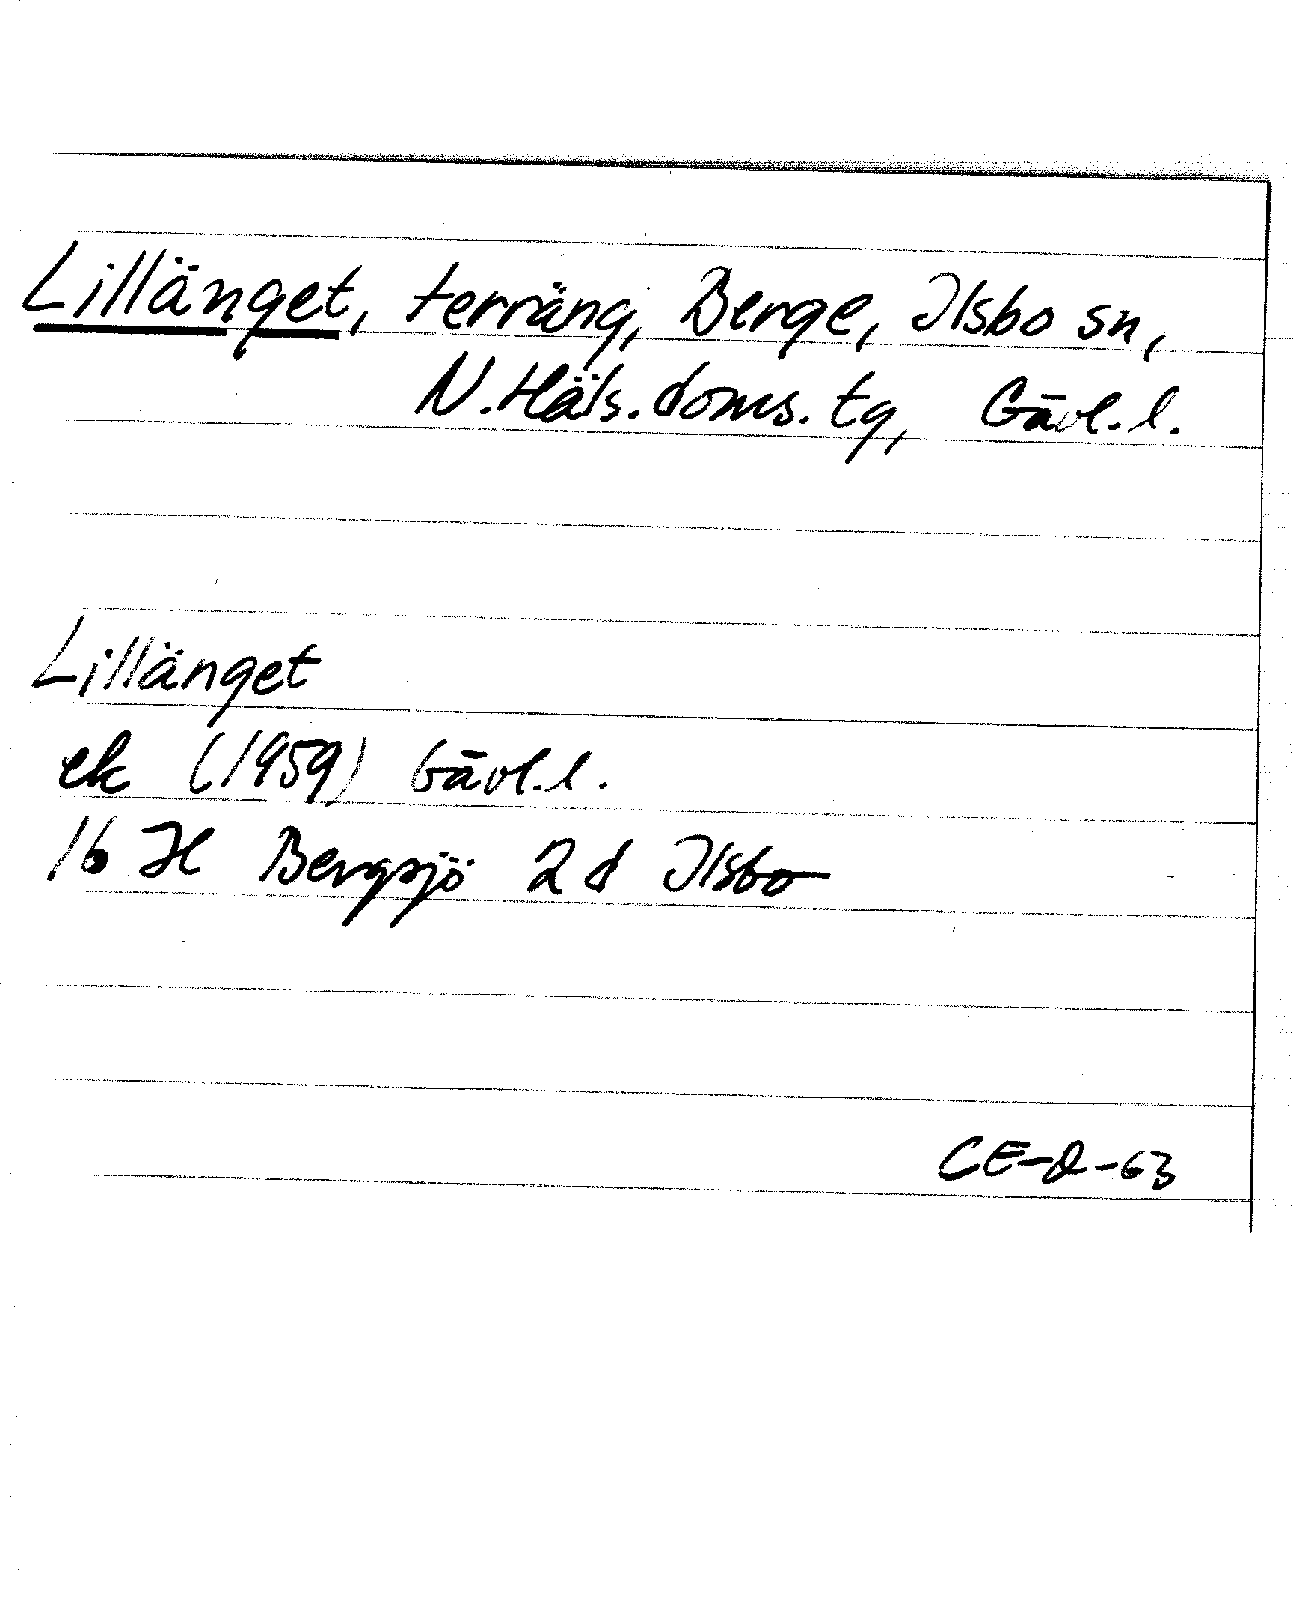 Lillänget, terräng, Berge, Ilsbo sn,
N. Häls. doms. tg, Gävl. l.
Lillänget
ek (1959) Gävl. l.
16 H Bergsjö 2 d Ilsbo
CE-2-63